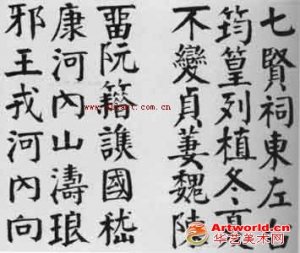 七賢祠東左右
筠篁列植冬夏
不變貞萋魏陳
畱阮籍譙國嵇
康河內山濤琅
邪王戎河內向
Artworld.cn
华艺美术网